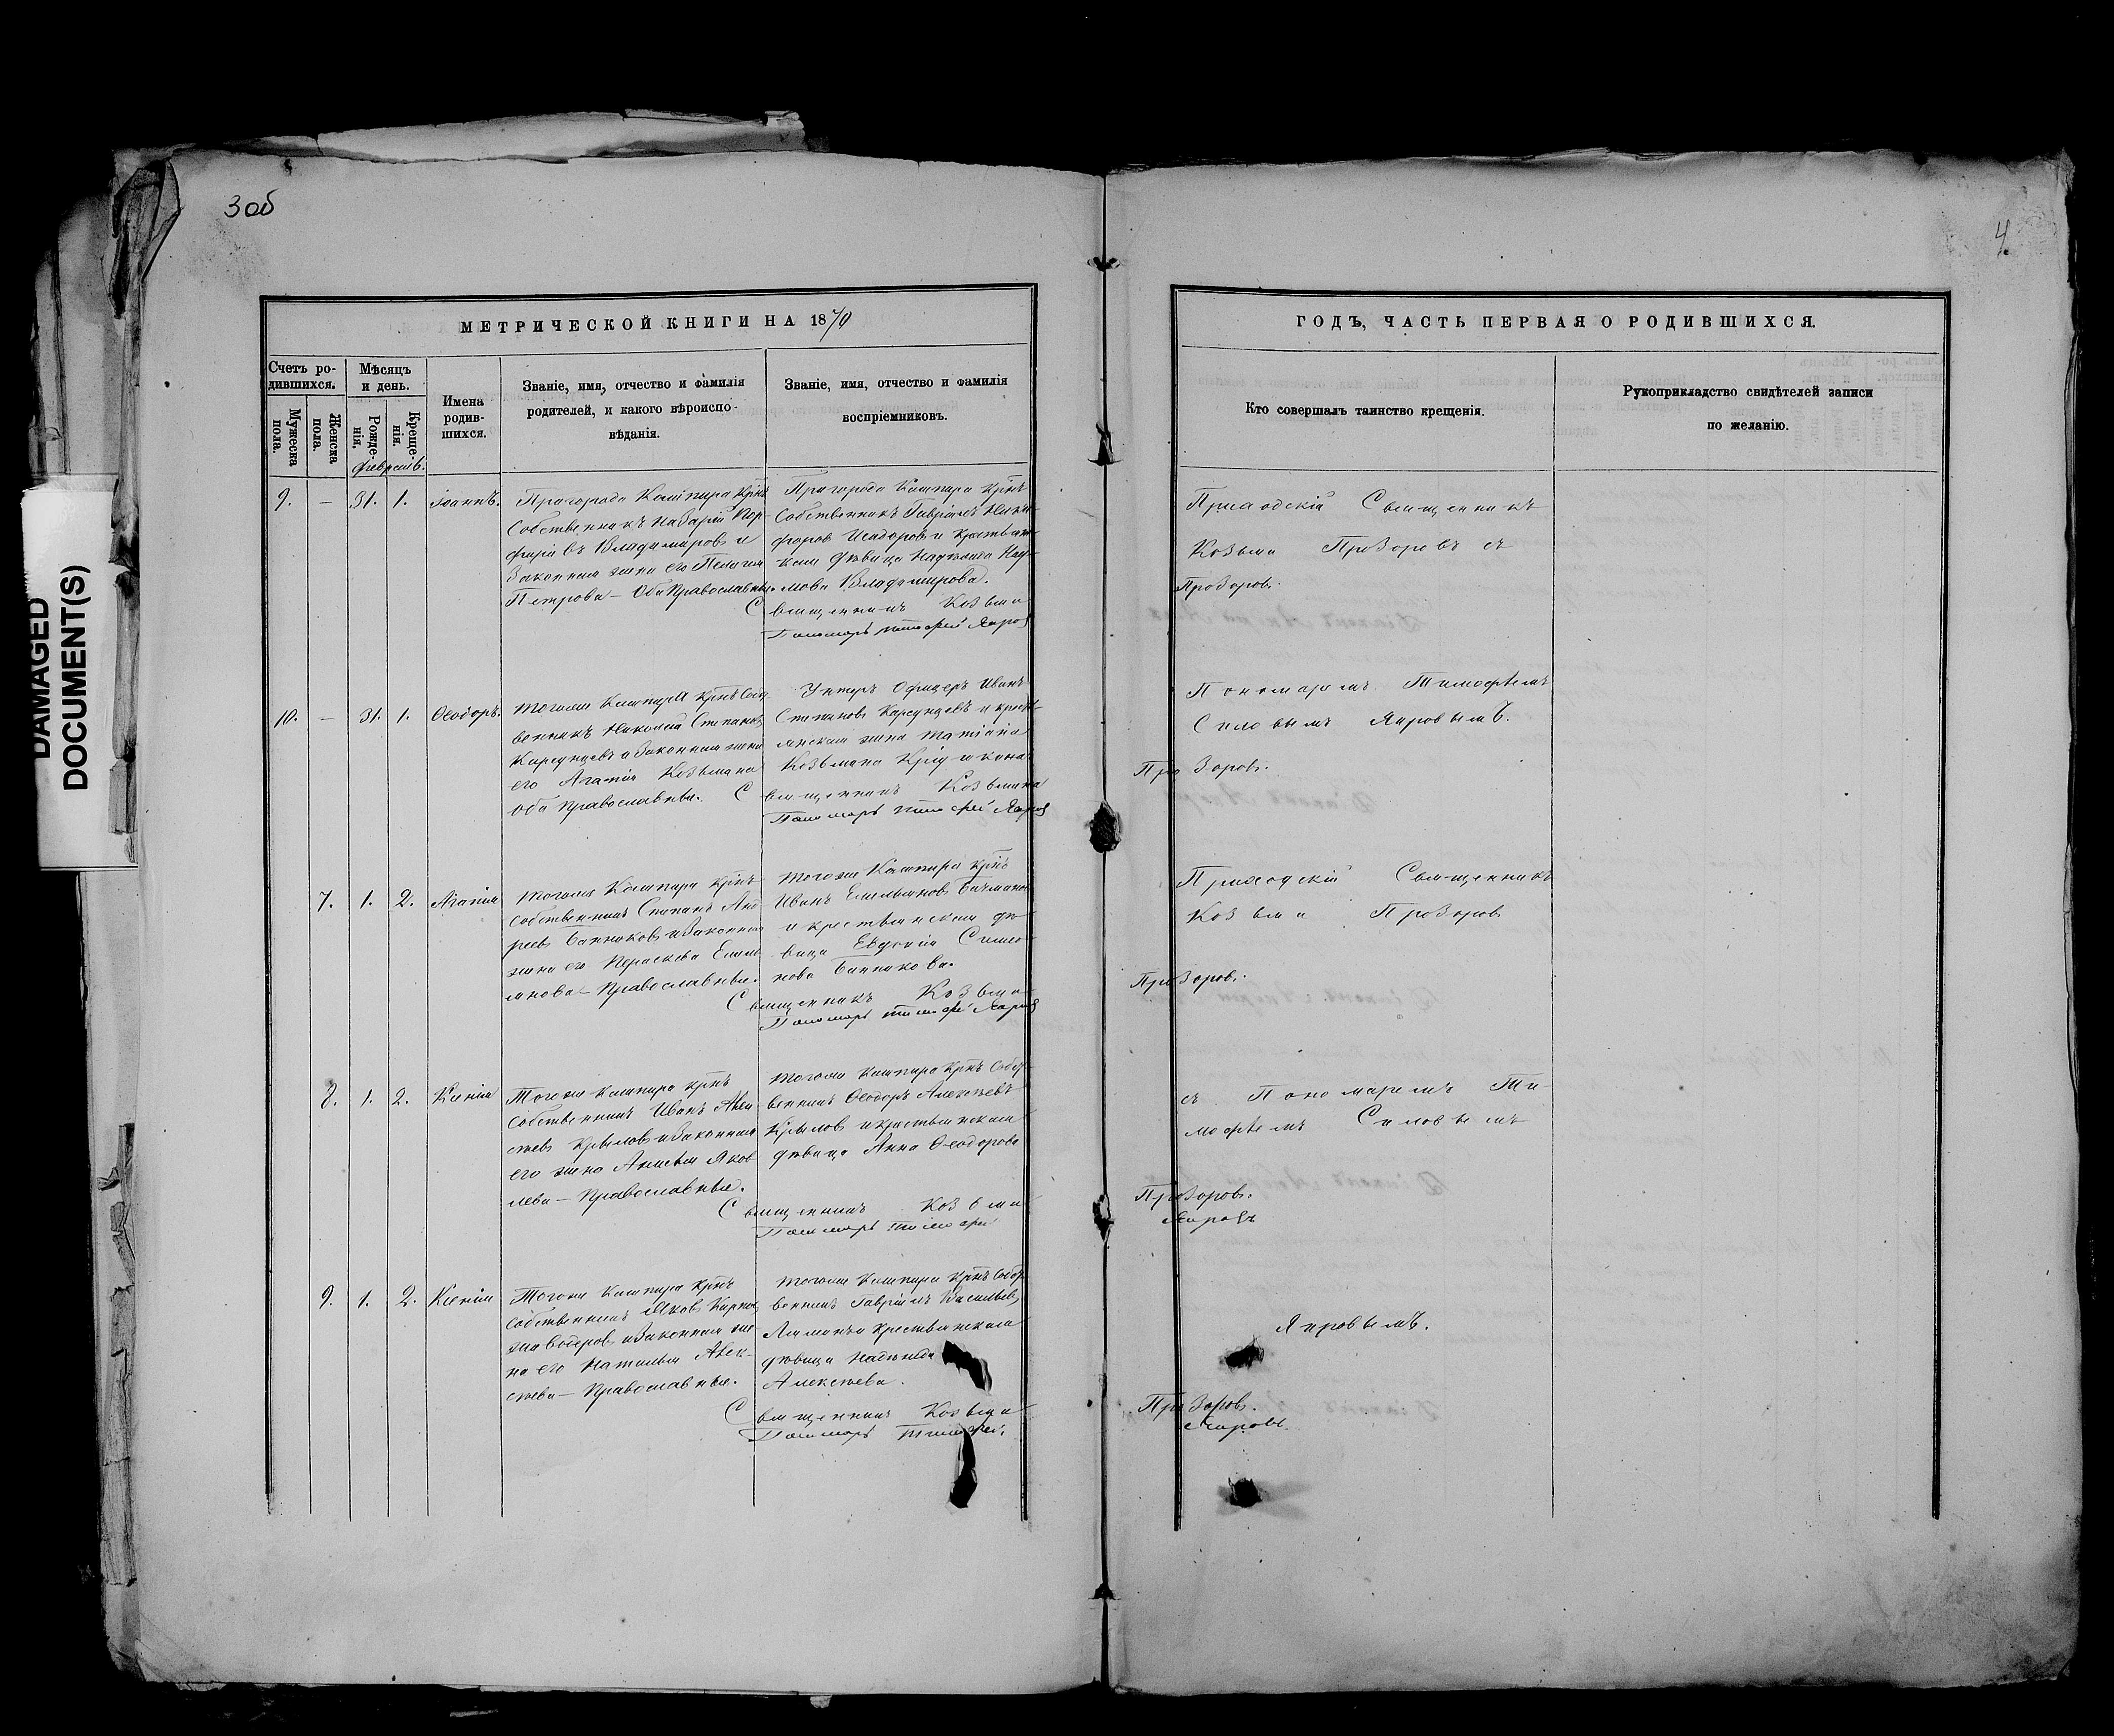 3 об
4
DAMAGED
DOCUMENT(S)
МЕТРИЧЕСКОЙ КНИГИ НА 1870
Счетъ ро-
дившихся.
Мужеска
пола.
Женска
пола.
Мѣсяцъ
и день.
Рожде-
нія.
Креще-
нія.
Имена
родив-
шихся.
Званіе, имя, отчество и фамилія
родителей, и какого вѣроиспо-
вѣданія.
Званіе, имя, отчество и фамилія
воспріемниковъ.
9. — 31. 1. Іоаннъ.
Пригорода Кашпира крнъ
Собственникъ Назарій Пор-
фирьевъ Владимировъ и
Законная жена его Пелагія
Петрова — Оба Православные.
Пригорода Кашпира крнъ
Собственникъ Гавріилъ Ники-
форовъ Исадоровъ и крестьян-
ская дѣвица Надежда
Владимирова.
Священникъ Козьма
Пономарь Тимофей Яировъ
10. — 31. 1. Ѳеодоръ.
Тогоже Кашпира крнъ Собст
венникъ Николай Степановъ
Карсунцевъ и Законная жена
его Агапія Козьмина
Оба Православные.
Унтеръ Офицеръ Иванъ
Степановъ Карсунцевъ и крест-
янская жена Татіана
Козьмина
Священникъ Козьма
Пономарь Тимофей Яировъ
7. 1. 2. Агапія
Тогоже Кашпира крнъ
Собственникъ Степанъ Анд
реевъ Банниковъ и Законная
жена его Параскева Емель
янова — Православные.
Тогоже Кашпира крнъ
Иванъ Емельяновъ
и крестьянская дѣ-
вица Евдокія Симео-
нова Банникова.
Священникъ Козьма
Пономарь Тимофей Яировъ
8. 1. 2. Ксенія
Тогоже Кашпира крнъ
Собственникъ Иванъ Алек
сѣевъ Крыловъ и Законная
его жена Яков
лева — Православные.
Тогоже Кашпира крнъ Собст-
венникъ Ѳеодоръ Алексѣевъ
Крыловъ и крестьянская
дѣвица Анна Ѳеодорова
Священникъ Козьма
Пономарь Тимофей
9. 1. 2. Ксенія
Тогоже Кашпира крнъ
Собственникъ Яковъ
и Законная же
на его Наталья Алек-
сѣева — Православные.
Тогоже Кашпира крнъ Собст
венникъ Гавріилъ Васильевъ
крестьянская
дѣвица Надежда
Алексѣева.
Священникъ Козьма
Пономарь Тимофей.
ГОДЪ, ЧАСТЬ ПЕРВАЯ О РОДИВШИХСЯ.
Кто совершалъ таинство крещенія.
Рукоприкладство свидѣтелей записи
по желанію.
Приходскій Священникъ
Козьма Прозоровъ съ
Прозоровъ.
Пономаремъ Тимофеемъ
Силовымъ Яировымъ.
Прозоровъ.
Приходскій Священникъ
Козьма Прозоровъ
Прозоровъ.
съ Пономаремъ Ти-
мофеемъ Силовымъ
Прозоровъ.
Яировъ
Яировымъ.
Прозоровъ.
Яировъ.